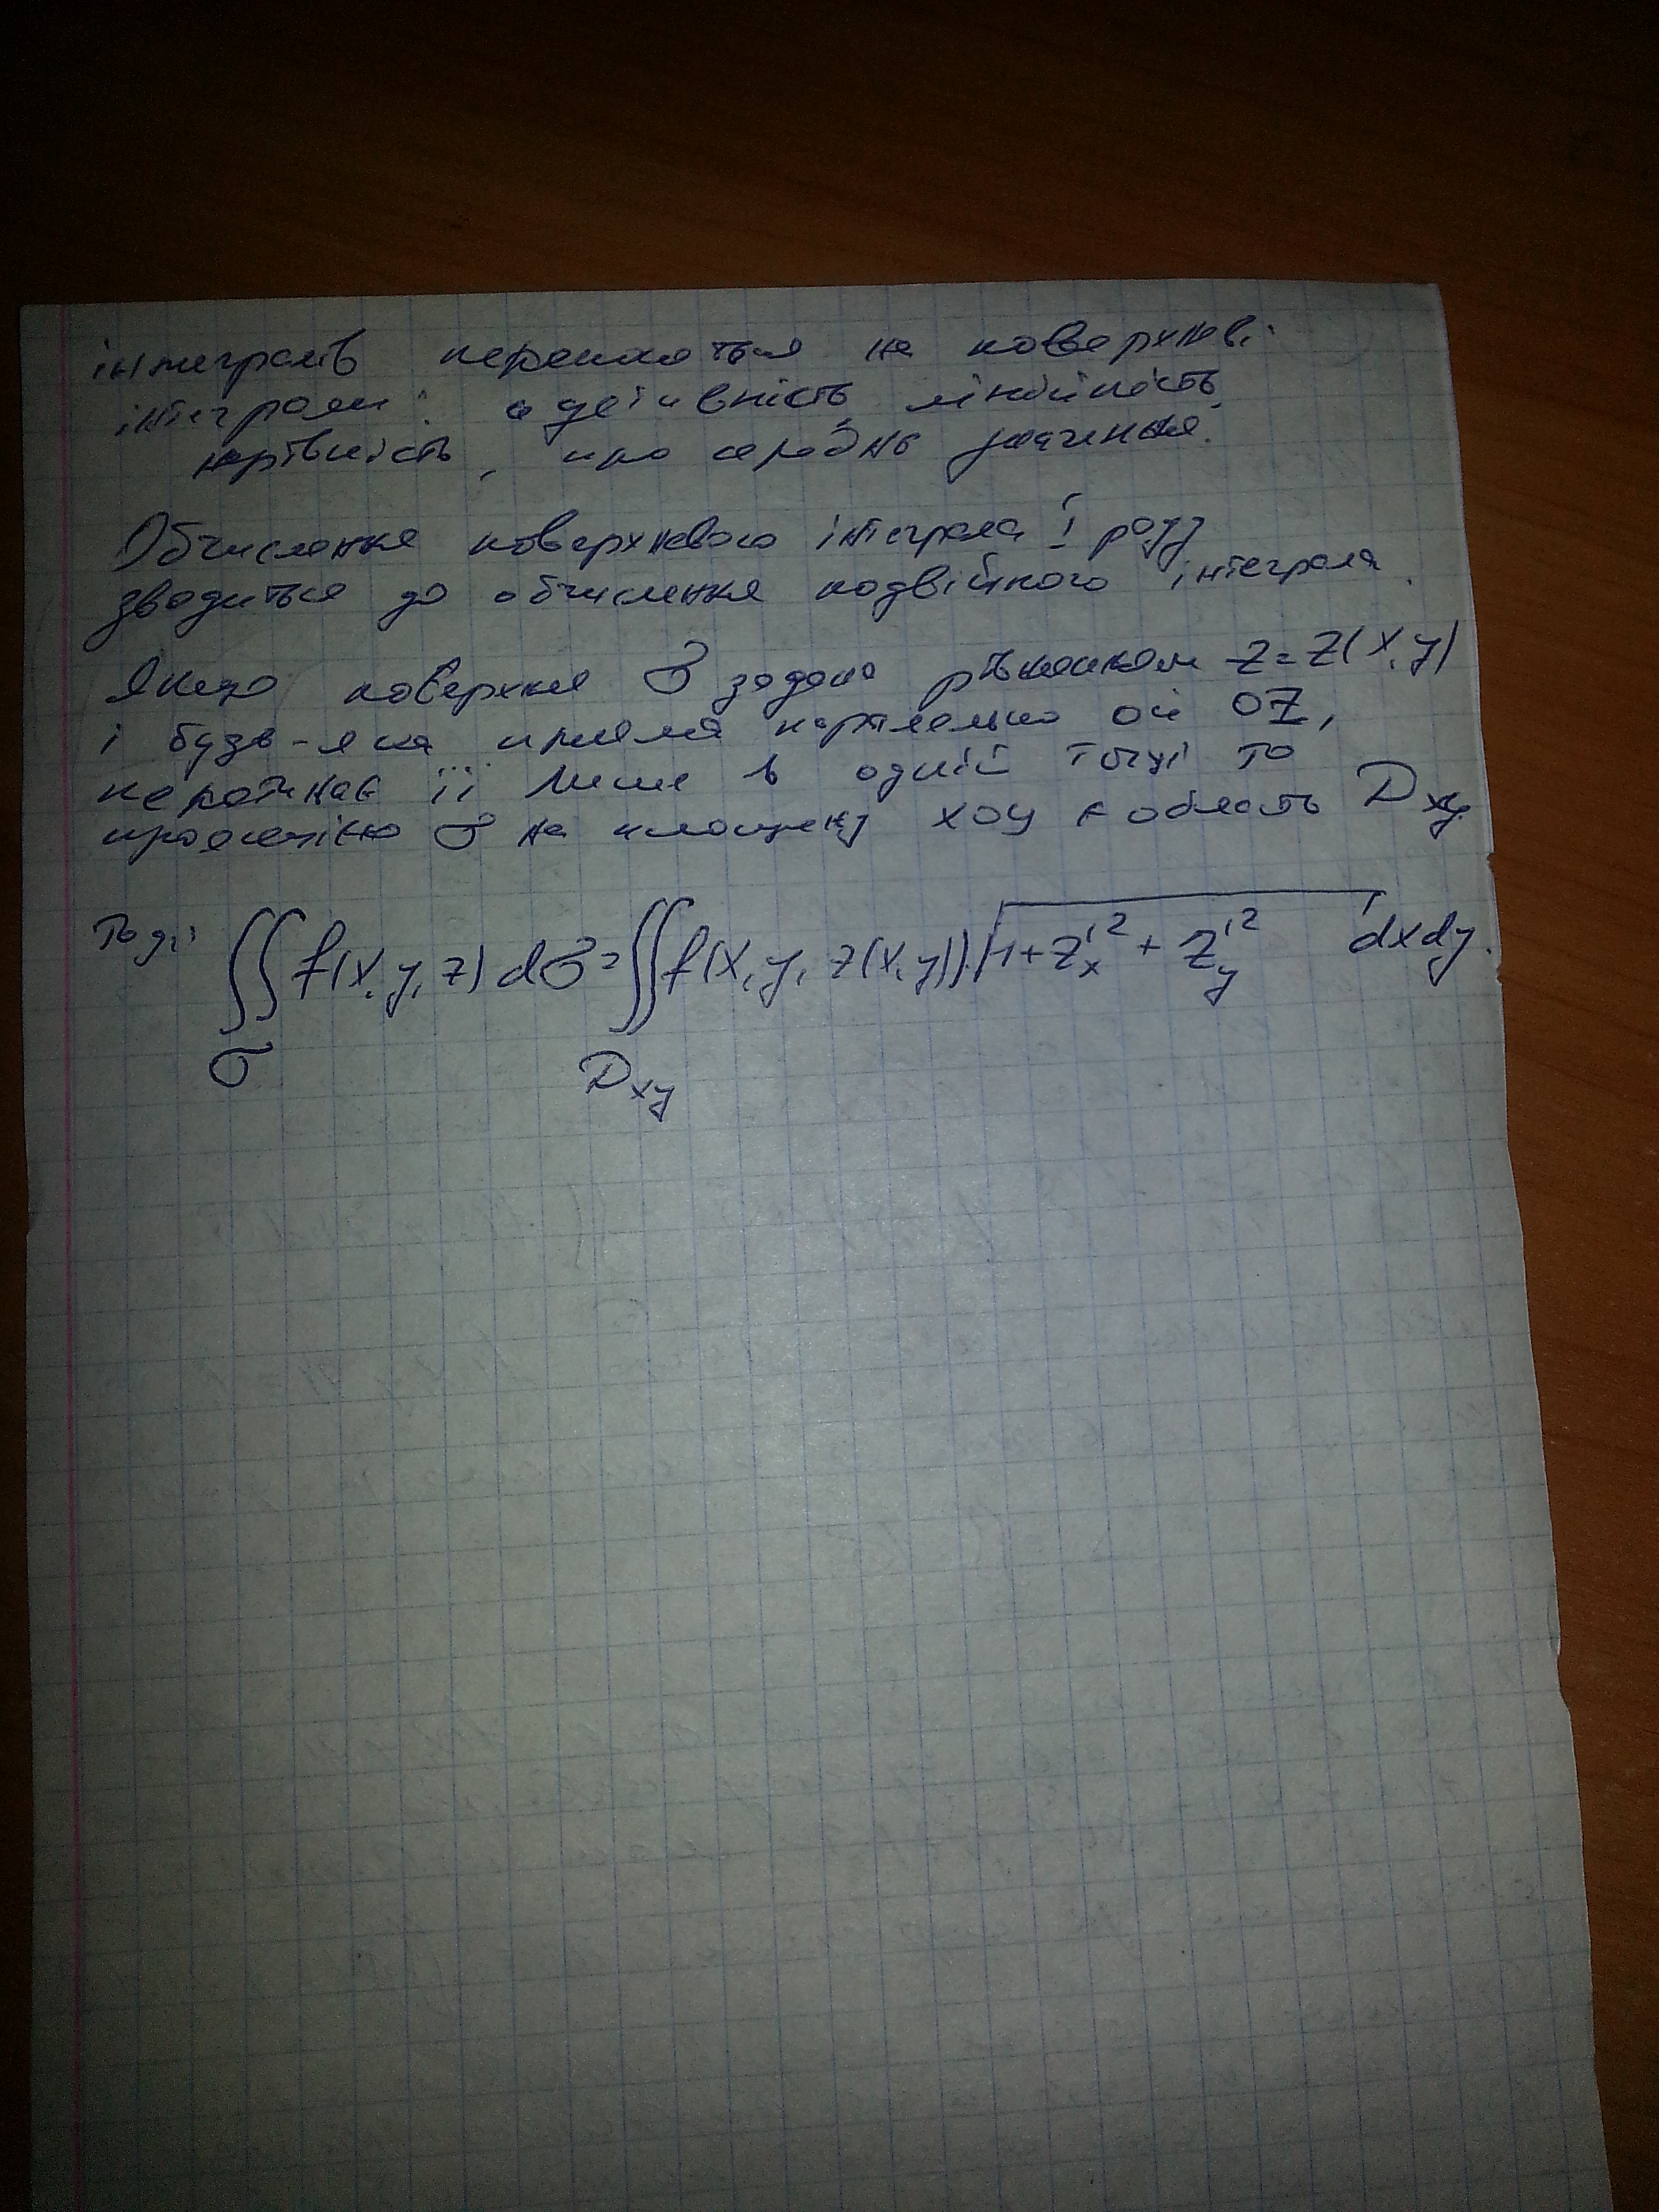 інтегралів переносяться на поверхневі
інтеграли: адитивність, лінійність,
нерівність, про середнє значення.
Обчислення поверхневого інтеграла І роду
зводиться до обчислення подвійного інтеграла.
Якщо поверхня σ задана рівнянням z = z(x, y)
і будь-яка пряма паралельно осі OZ,
перетинає її лише в одній точці то
проекцією σ на площину xOy є область Dxy
Тоді ∬ f(x, y, z) dσ = ∬ f(x, y, z(x, y)) · √(1 + z'x² + z'y²) dxdy.
σ Dxy